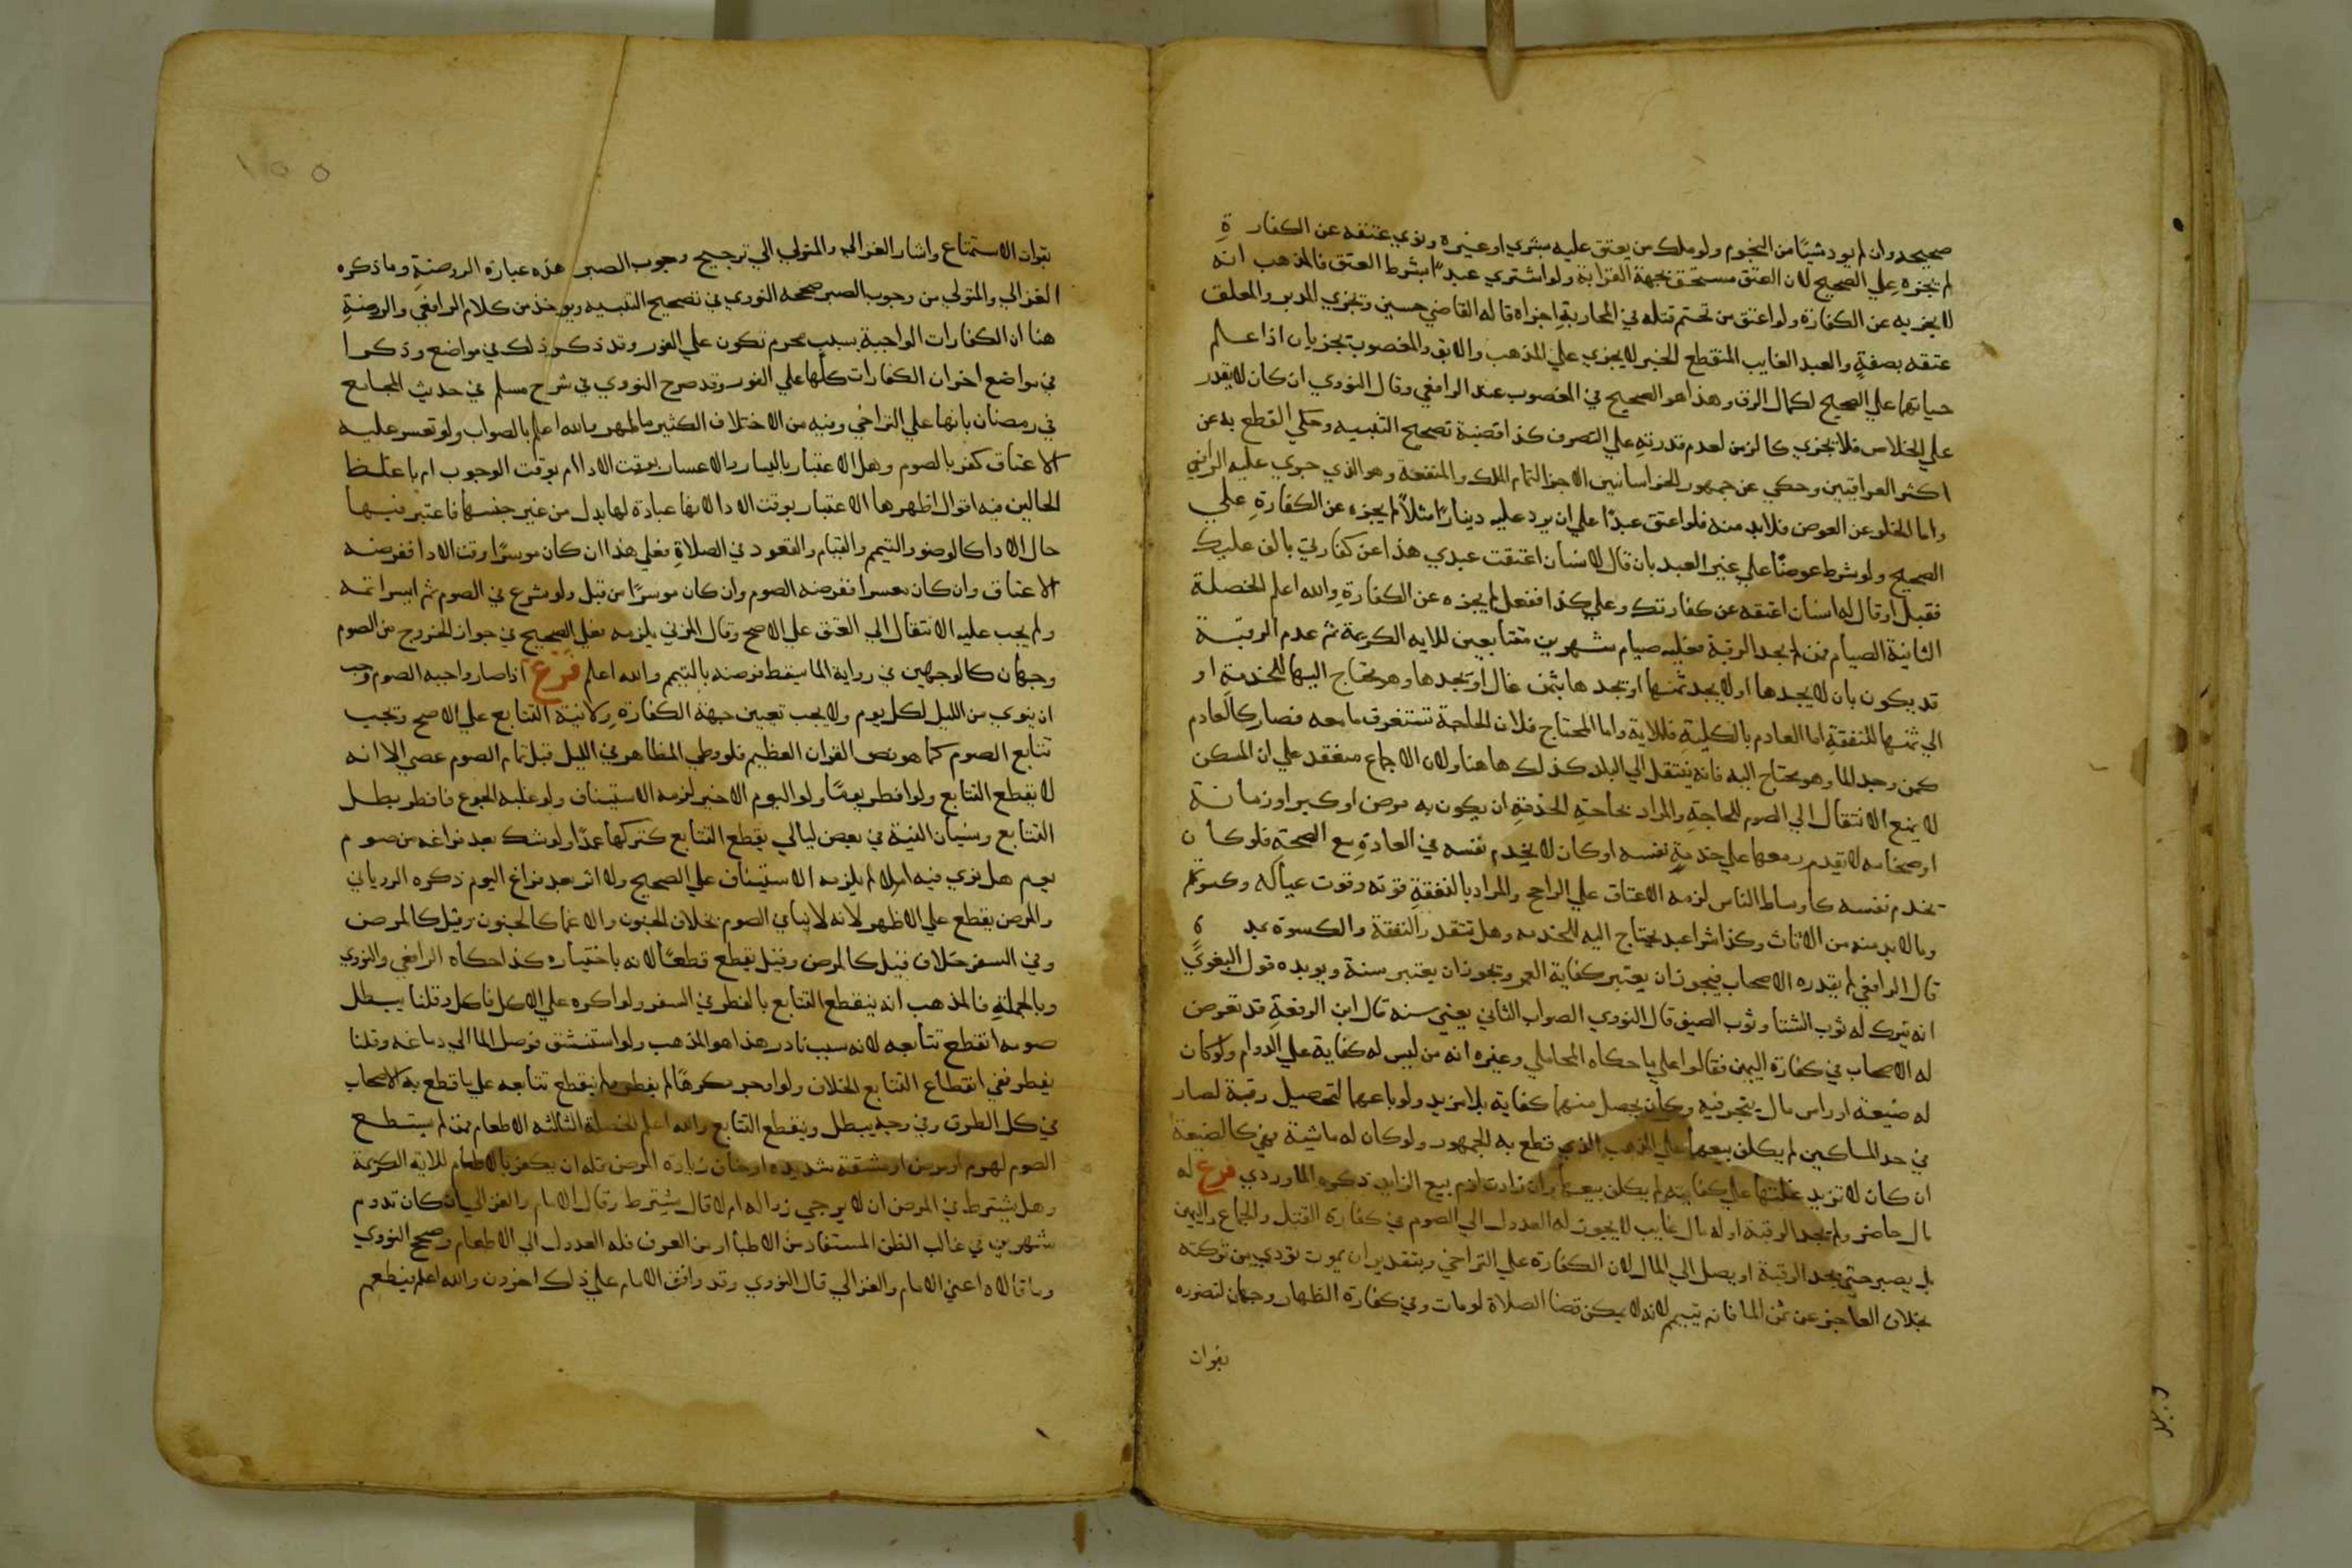 صحيحه وان لم يود شيًا من النجوم ولو ملك من يعتق عليه بشري او غيره ونوي عتقه عن الكفارةِ
لم يجزه علي الصحيح لان العتق مستحق بجهة القرابة ولو اشتري عبدًا بشرط العتق فالمذهب انه
لا يجزيه عن الكفارة ولو اعتق من تحتم قتله في المحاربةِ اجزاه قاله القاضي حسين ويجزي المدبر والمعلق
عتقه بصفةٍ والعبد الغايب المنقطع الخبر لا يجزي علي المذهب والابق والمغصوب يجزيان اذا علم
حياتهما علي الصحيح لكمال الرق وهذا هو الصحيح في المغصوب عند الرافعي وقال النووي ان كان لا يقدر
علي الخلاص فلا يجزي كالزمن لعدم قدرته علي التصرف كذا اقضية تصحيح التنبيه وحكي القطع به عن
اكثر العراقيين وحكي عن جمهور الخراسانيين الاجزا لتمام الملك والمنفعة وهو الذي جري عليه الرافعي
واما الخلو عن العوض فلابد منه فلو اعتق عبدًا علي ان يرد عليه دينارًا مثلًا لم يجزه عن الكفارةِ علي
الصحيح ولو شرط عوضًا علي غير العبد بان قال لانسان اعتقت عبدي هذا عن كفارتي بالف عليك
فقبل او قال له انسان اعتقه عن كفارتك وعلي كذا ففعل لم يجزه عن الكفارةِ والله اعلم الخصلة
الثانية الصيام فمن لم يجد الرقبة فعليه صيام شهرين متتابعين للايه الكريمة ثم عدم الرقبة
قد يكون بان لا يجدها او لا يجد ثمنها او يجدها بثمن غال او يجدها وهو يحتاج اليها للخدمةِ او
الي ثمنها للنفقةِ اما العادم بالكليةِ فللاية واما المحتاج فلان الحاجة تستغرق ما معه فصار كالعادم
كمن وجد الما وهو محتاج اليه فانه ينتقل الي البدل كذلك هاهنا ولان الاجماع منعقد علي ان المسكن
لا يمنع الانتقال الي الصوم للحاجةِ والمراد بحاجةِ الخدمةِ ان يكون به مرض او كبر او زمانة
او ضخامه لا يقدم معها علي خدمةٍ نفسه او كان لا يخدم نفسه في العادةِ مع الصحةِ فلو كان
يخدم نفسه كاوساط الناس لزمه الاعتاق علي الراجح والمراد بالنفقةِ قوته وقوت عياله وكسوتهم
وما لا بد منه من الاثاث وكذا شرا عبد يحتاج اليه للخدمه وهل تتقدر النفقة والكسوة بمدةٍ
قال الرافعي لم يقدره الاصحاب فيجوز ان يعتبر كفاية العمر ويجوز ان يعتبر سنة ويويده قول البغوي
انه يترك له ثوب الشتا وثوب الصيف قال النووي الصواب الثاني يعني سنه قال ابن الرفعةِ قد تعرض
له الاصحاب في كفارة اليمين فقالوا علي ما حكاه المحاملي وغيره انه من ليس له كفاية علي الدوام ولو كان
له ضيعة او راس مال يتجر فيه وكان يحصل منهما كفاية بلا مزيد ولو باعهما لتحصيل رقبة لصار
في حد المساكين لم يكلف بيعهما علي المذهب الذي قطع به الجمهور ولو كان له ماشية فهي كالضيعة
ان كان لا تزيد غلتها علي كفايته لم يكلف بيعها وان زادت لزم بيع الزايد ذكره الماوردي فرع له
مال حاضر ولم يجد الرقبة او له مال غايب لا يجوز له العدول الي الصوم في كفارة القتل والجماع واليمين
بل يصبر حتي يجد الرقبة او يصل الي المال لان الكفارة علي التراخي وبتقدير ان يموت تودي من تركته
بخلاف العاجز عن ثمن الما فانه يتيمم لانه لا يمكن قضا الصلاة لو مات وفي كفارة الظهار وجهان لتضرره
بفوات
بفوات الاستمتاع واشار الغزالي والمتولي الي ترجيح وجوب الصبر هذه عبارة الروضةِ وما ذكره
الغزالي والمتولي من وجوب الصبر صححه النووي في تصحيح التنبيه ويوخذ من كلام الرافعي والروضةِ
هنا ان الكفارات الواجبة بسبب محرم تكون علي الفور وقد ذكر ذلك في مواضع وذكرا
في مواضع اخر ان الكفارات كلها علي الفور وقد صرح النووي في شرح مسلم في حديث المجامع
في رمضان بانها علي التراخي وفيه من الاختلاف الكثير ما لهم والله اعلم بالصواب ولو تعسر عليه
الاعتاق كفر بالصوم وهل الاعتبار باليسار والاعسار بوقت الادا ام بوقت الوجوب ام باغلظ
الحالين فيه اقوال اظهرها الاعتبار بوقت الادا لانها عبادة لها بدل من غير جنسها فاعتبر فيها
حال الادا كالوضو والتيمم والقيام والقعود في الصلاةِ فعلي هذا ان كان موسرًا وقت الادا ففرضه
الاعتاق وان كان معسرا ففرضه الصوم وان كان موسرًا من قبل ولو شرع في الصوم ثم ايسر اتمه
ولم يجب عليه الانتقال الي العتق علي الاصح وقال المزني يلزمه فعلي الصحيح في جواز الخروج من الصوم
وجهان كالوجهين في رواية الما يسقط فرضه بالتيمم والله اعلم فرع اذا صار واجبه الصوم وجب
ان ينوي من الليل لكل يوم ولا يجب تعيين جهة الكفارةِ ولا نية التتابع علي الاصح ويجب
تتابع الصوم كما هو نص القران العظيم فلو وطي المظاهر في الليل قبل تمام الصوم عصي الا انه
لا يقطع التتابع ولو افطر يومًا ولو اليوم الاخير لزمه الاستيناف ولو غلبه الجوع فافطر بطل
التتابع ونسيان النية في بعض ليالي يقطع التتابع كتركها عمدًا ولو شك بعد فراغه من صوم
يوم هل نوي فيه ام لا لم يلزمه الاستيناف علي الصحيح ولا اثر بعد فراغ اليوم ذكره الروياني
والمرض يقطع علي الاظهر لانه لا ينافي الصوم بخلاف الجنون والاغما كالجنون وقيل كالمرض
وفي السفر خلاف فقيل كالمرض وقيل يقطع قطعًا لانه باختياره كذا حكاه الرافعي والنووي
وبالجملةِ فالمذهب انه ينقطع التتابع بالفطر في السفر ولو اكره علي الاكل فاكل وقلنا يبطل
صومه انقطع تتابعه لانه سبب نادر هذا هو المذهب ولو استنشق فوصل الما الي دماغه وقلنا
يفطر ففي انقطاع التتابع الخلاف ولو اوجر مكرهًا لم يفطر ولم ينقطع تتابعه علي ما قطع به الاصحاب
في كل الطرق وفي وجه يبطل وينقطع التتابع والله اعلم الخصلة الثالثه الاطعام فمن لم يستطع
الصوم لهرم او مرض او مشقة شديده او خاف زيادة المرض فله ان يكفر بالاطعام للاية الكريمة
وهل يشترط في المرض ان لا يرجي زواله ام لا قال يشترط وقال الامام والغزالي ان كان تدوم
شهرين في غالب الظن المستفاد من الاطبا او من العرف فله العدول الي الاطعام وصحح النووي
وما قالاه اعني الامام والغزالي قال النووي وقد وافق الامام علي ذلك اخرون والله اعلم فيطعم